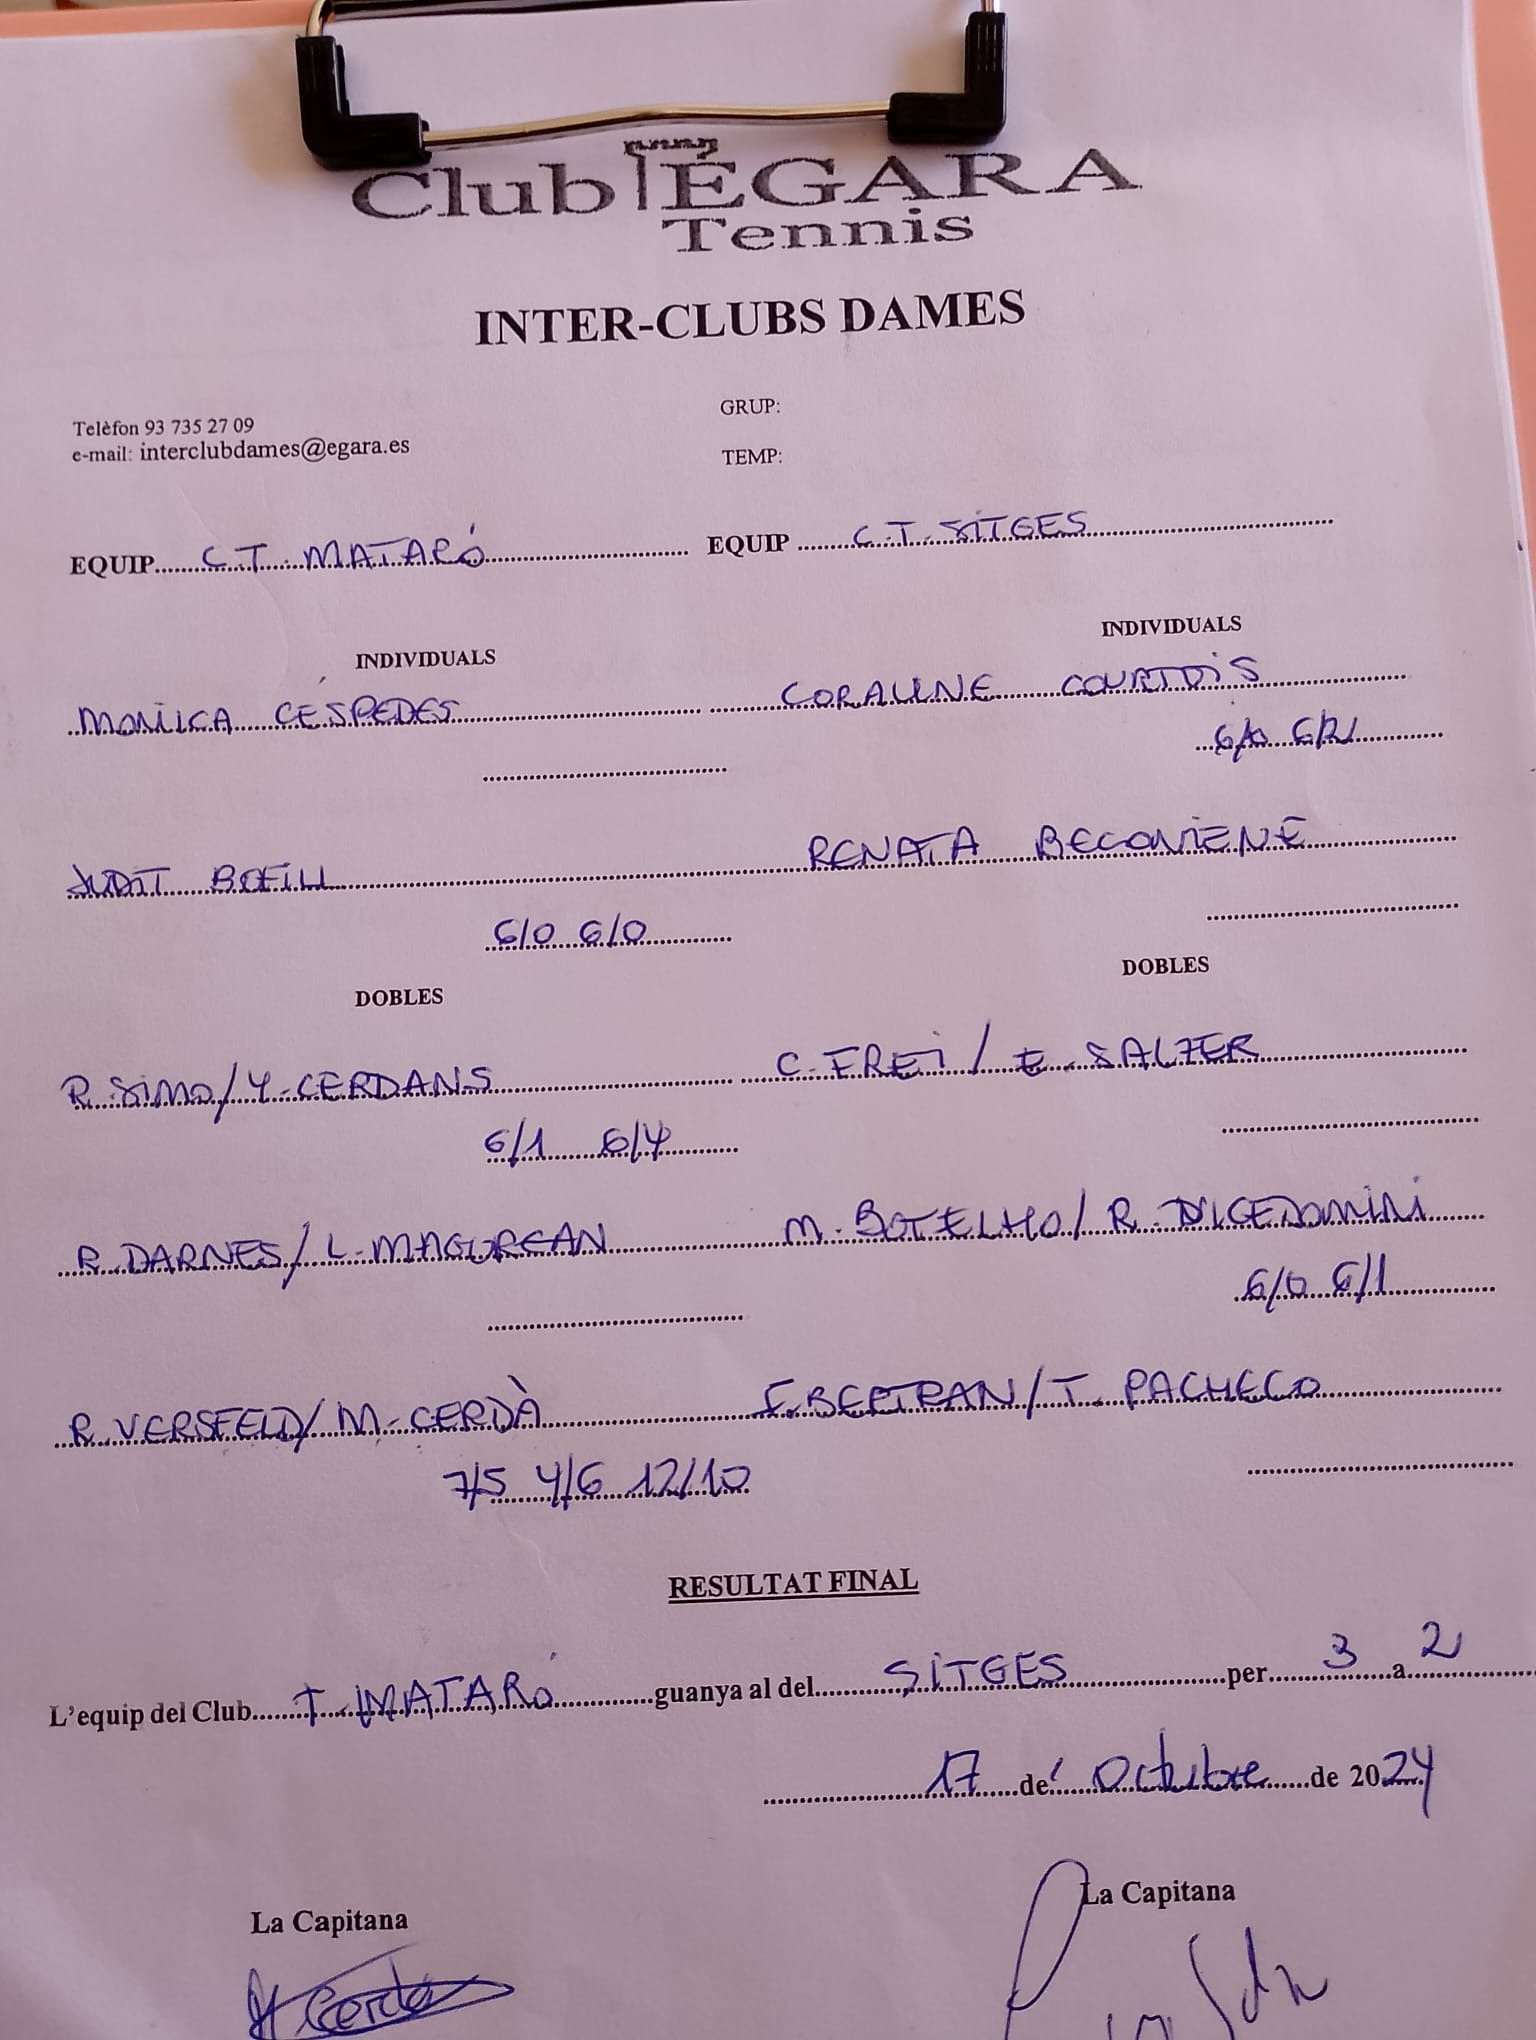 Club ÈGARA
Tennis
INTER-CLUBS DAMES
GRUP:
Telèfon 93 735 27 09
e-mail: interclubdames@egara.es
TEMP:
EQUIP C.T. MATARÓ EQUIP C.T. SITGES
INDIVIDUALS INDIVIDUALS
MONICA CÉSPEDES CORALINE COURTOIS
6/0 6/2
JUDIT BOFILL RENATA BECONIENE
6/0 6/0
DOBLES DOBLES
R. SIMO/Y. CERDANS C. FREI / E. SALZER
6/1 6/4
R. DARNES/L. MAGUREAN M. BOTELHO/ R. DILGEDOMINI
6/0 6/1
R. VERSFELD/ M. CERDÀ F. BERTRAN/T. PACHECO
7/5 4/6 12/10
RESULTAT FINAL
L'equip del Club T. MATARÓ guanya al del SITGES per 3 a 2
17 de Octubre de 2024
La Capitana La Capitana